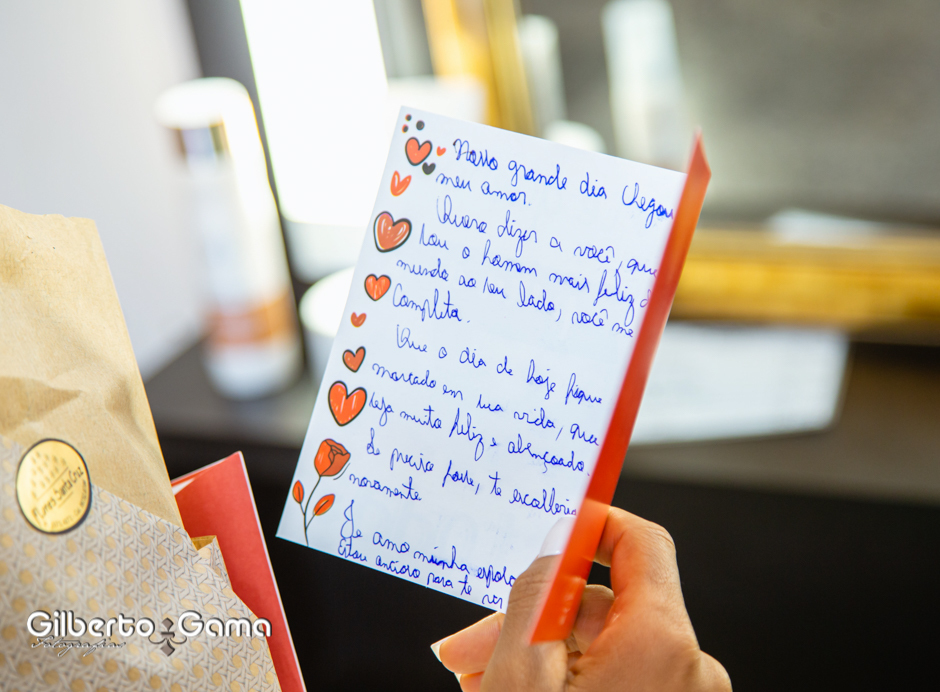 Nosso grande dia chegou
meu amor.
Quero dizer a você, que
sou o homem mais feliz d
mundo ao seu lado, você me
Completa.
Que o dia de hoje fique
marcado em sua vida, que
seja muito feliz e abençoado.
Se preciso forte, te escolheria
novamente
Te amo minha esposa
Estou ancioso para te ver
Gilberto Gama
Fotografias